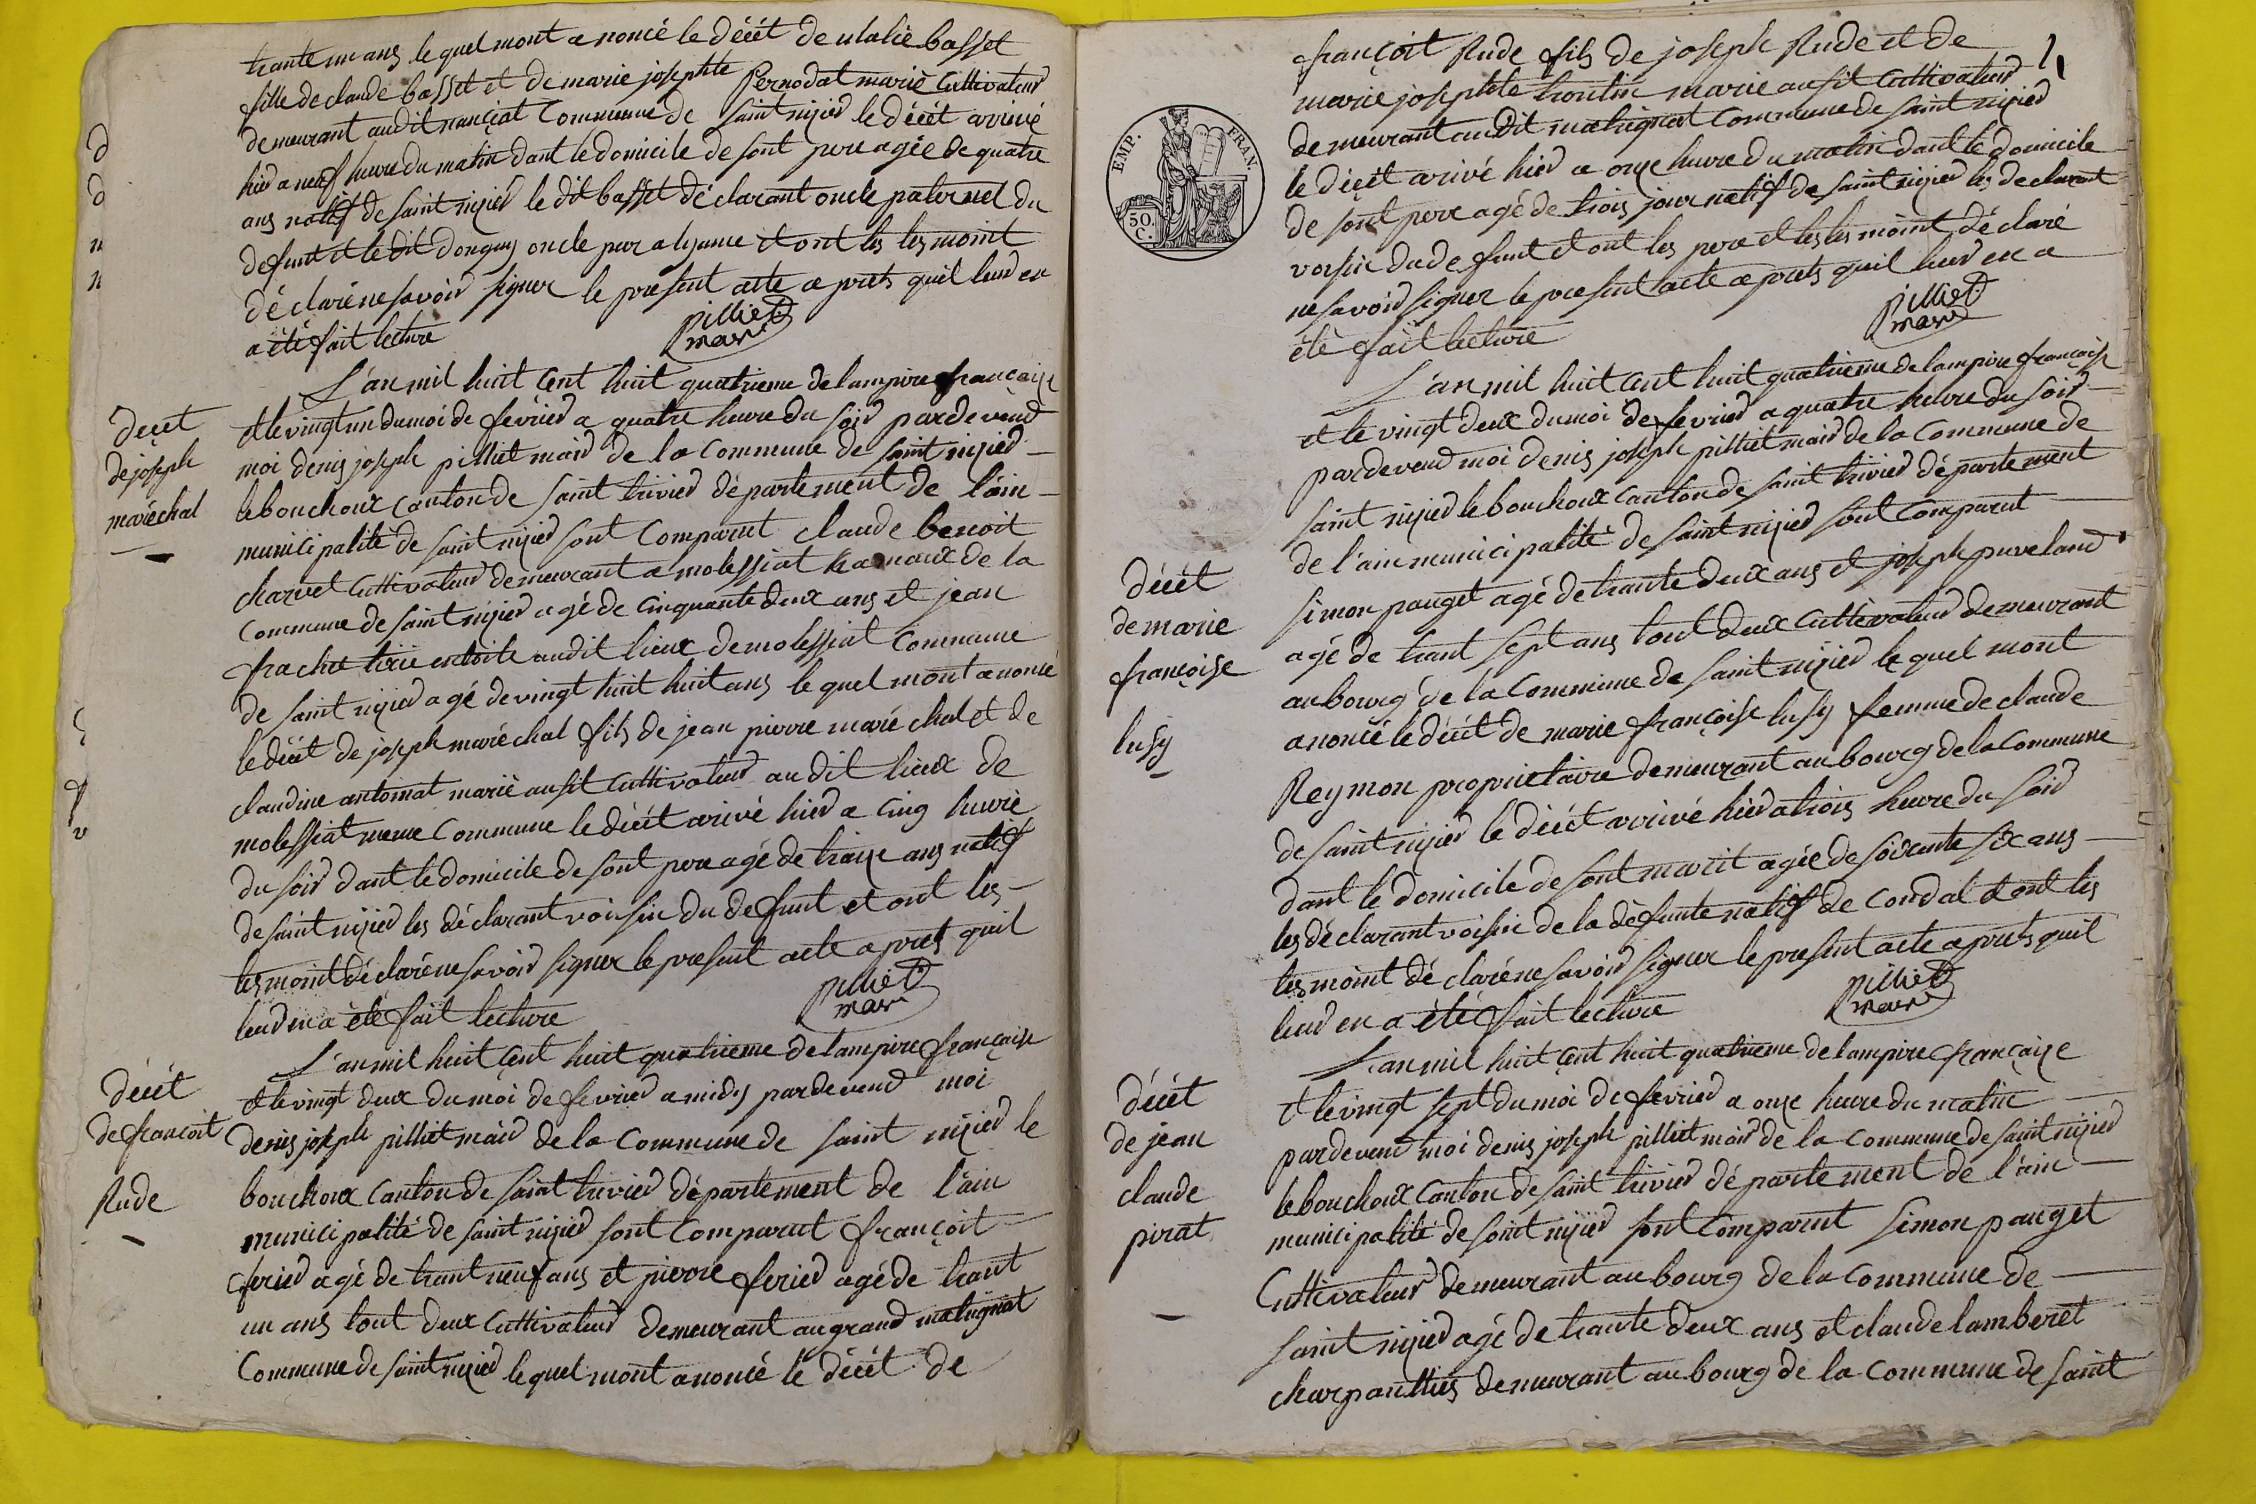 trante un ans le quel mont anoncé le décét de ulalie basset
fille de claude basset et de marie josephte Pernodat marié Cultivateur
demeurant audit nançiat Commune de saint nizier le décét arrivé
hier a neuf heure du matin dant le domicile de sont pere agée de quatre
ans natif de saint nizier le dit basset déclarant oncle paternel du
defunt et le dit donguy oncle par alyance et ont les tesmoint
déclaré ne savoir signer le present acte a prets quil leur en
a été fait lecture
pilliet
mair
L'an mil huit Cent huit quatrieme de lampire françaize
et le vingt un du moi de fevrier a quatre heure du soir par devend
moi denis joseph pilliet mair de la Commune de saint nizier
le bouchoux Canton de saint trivier département de l'ain
municipalité de saint nizier sont Comparut claude benoit
charvet Cultivateur demeurant a molessiat hamaux de la
Commune de saint nizier agé de Cinquante deux ans et jean
frachet audit lieux de molessiat Commune
de saint nizier agé de vingt huit huit ans le quel mont anoncé
le décét de joseph maréchal fils de jean pierre maréchal et de
claudine antoinat marié ausit Cultivateur au dit lieux de
molessiat meme Commune le décét arivé hier a Cinq heure
du soir dant le domicile de sont pere agé de traize ans natif
de saint nizier les déclarant voisin du defunt et ont les
tesmoint déclaré ne savoir signer le present acte a prets quil
leur en a été fait lecture
pilliet
mair
L'an mil huit Cent huit quatrieme de lampire françaize
et le vingt deux du moi de fevrier a midy par devend moi
denis joseph pilliet mair de la Commune de saint nizier le
bouchoux Canton de saint trivier département de l'ain
municipalité de saint nizier sont Comparut françoit
ferier agé de trant neuf ans et pierre ferier agé de trant
un ans tout deux Cultivateur demeurant au grand malignat
Commune de saint nizier le quel mont anoncé le décét de
décét
de joseph
maréchal
décét
de françoit
Rude
françoit Rude fils de joseph Rude et de
marie josephte trontin marie ausit Cultivateur
demeurant audit malignat Commune de saint nizier
le décét arivé hier a onze heure du matin dant le domicile
de sont pere agé de trois jour natif de saint nizier les declarant
voisin du defunt et ont les pere et les tesmoint déclaré
ne savoir signer le present acte a prets quil leur en a
été fait lecture
pilliet
mair
EMP. FRAN.
50 C.
L'an mil huit Cent huit quatrieme de lampire françaize
et le vingt deux du moi de fevrier a quatre heure du soir
par devend moi denis joseph pilliet mair de la Commune de
saint nizier le bouchoux Canton de saint trivier département
de l'ain municipalité de saint nizier sont Comparut
simon pauget agé de trante deux ans et joseph puveland
agé de trant sept ans tout deux Cultivateur demeurant
au bourg de la Commune de saint nizier le quel mont
anoncé le décét de marie françoise lusy femme de claude
Reymon proprietaire demeurant au bourg de la Commune
de saint nizier le décét arrivé hier a trois heure du soir
dant le domicile de sont marit agée de soixante six ans
les déclarant voisin de la défunte natif de Condal et ont les
tesmoint déclaré ne savoir signer le present acte a prets quil
leur en a été fait lecture
pilliet
mair
L'an mil huit Cent huit quatrieme de lampire françaize
et le vingt sept du moi de fevrier a onze heure du matin
par devend moi denis joseph pilliet mair de la Commune de saint nizier
le bouchoux Canton de saint trivier département de l'ain
municipalité de saint nizier sont Comparut simon pauget
Cultivateur demeurant au bourg de la Commune de
saint nizier agé de trante deux ans et claude lamberet
charpanttier demeurant au bourg de la Commune de saint
décét
de marie
françoise
lusy
décét
de jean
claude
pirat